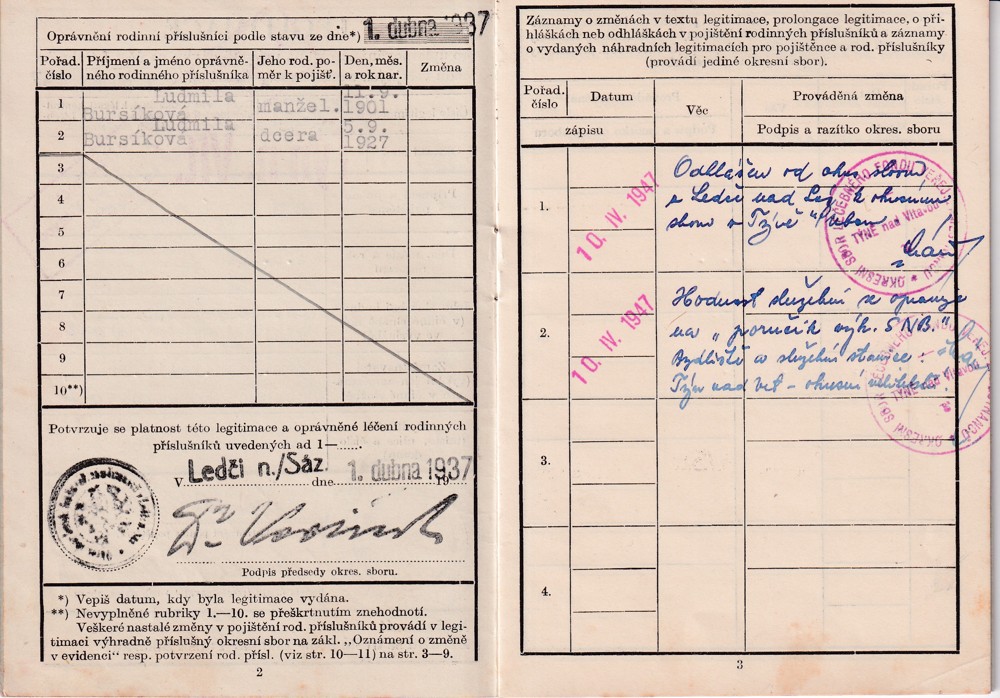 Oprávnění rodinní příslušníci podle stavu ze dne*) 1. dubna 1937
Pořad. číslo
Příjmení a jméno oprávně-
ného rodinného příslušníka
Jeho rod. po-
měr k pojišť.
Den, měs.
a rok nar.
Změna
1 Ludmila Bursíková manžel. 11.9. 1901
2 Ludmila Bursíková dcera 5.9. 1927
3
4
5
6
7
8
9
10**)
Potvrzuje se platnost této legitimace a oprávněné léčení rodinných
příslušníků uvedených ad 1—......
V Ledči n./Sáz. dne 1. dubna 1937 19
Dr
Podpis předsedy okres. sboru.
*) Vepiš datum, kdy byla legitimace vydána.
**) Nevyplněné rubriky 1.—10. se přeškrtnutím znehodnotí.
Veškeré nastalé změny v pojištění rod. příslušníků provádí v legi-
timaci výhradně příslušný okresní sbor na zákl. „Oznámení o změně
v evidenci“ resp. potvrzení rod. přísl. (viz str. 10—11) na str. 3—9.
2
Záznamy o změnách v textu legitimace, prolongace legitimace, o při-
hláškách neb odhláškách v pojištění rodinných příslušníků a záznamy
o vydaných náhradních legitimacích pro pojištěnce a rod. příslušníky
(provádí jediné okresní sbor).
Pořad. číslo
Datum
zápisu
Věc
Prováděná změna
Podpis a razítko okres. sboru
1.
10. IV. 1947
Odhlášen od okres. sboru
v Ledči nad Sáz. k okresnímu
sboru v Týně
OKRESNÍ SBOR LÉČEBNÉHO FONDU
TÝNĚ nad Vltavou
2.
10. IV. 1947
Hodnost služební se opravuje
na „poručík výk. S.N.B.“
Bydliště a služební stanice :-
Týn nad Vlt - okresní velitelství.
OKRESNÍ SBOR LÉČEBNÉHO FONDU
TÝNĚ nad Vltavou
3.
4.
3